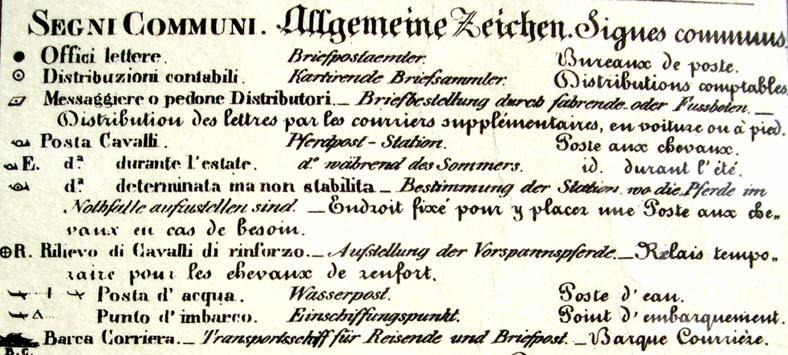 SEGNI COMMUNI. Allgemeine Zeichen. Signes communs.
Offici lettere. Briefpostaemter. Bureaux de poste.
Distribuzioni contabili. Kartirende Briefsammler. Distributions comptables.
Messaggiere o pedone Distributori._ Briefbestellung durch fahrende oder Fussboten._
Distribution des lettres par les courriers supplémentaires, en voiture ou à pied.
Posta Cavalli. Pferdpost-Station. Poste aux chevaux.
E. dª durante l'estate. dº während des Sommers. id. durant l'été.
dª determinata ma non stabilita _ Bestimmung der Station, wo die Pferde im
Nothfalle aufzustellen sind. _ Endroit fixé pour y placer une Poste aux che-
vaux en cas de besoin.
R. Rilievo di Cavalli di rinforzo._ Aufstellung der Vorspannspferde._ Relais tempo-
raire pour les chevaux de renfort.
Posta d'acqua. Wasserpost. Poste d'eau.
Punto d'imbarco. Einschiffungspunkt. Point d'embarquement.
Barca Corriera._ Transportschiff für Reisende und Briefpost._ Barque Courrière.
B.C.